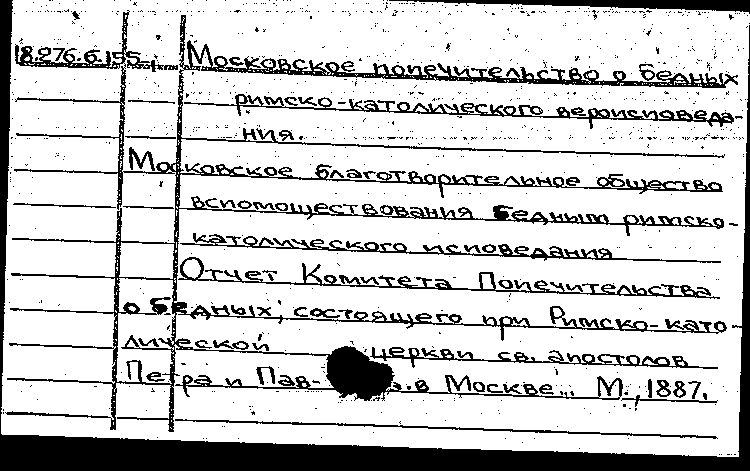 18.276.6.155. Московское попечительство о бедных
римско-католического вероисповеда-
ния.
Московское благотворительное общество
вспомоществования бедным римско-
католического исповедания
Отчет Комитета Попечительства
о бедных, состоящего при Римско-като-
лической церкви св. апостолов
Петра и Пав- в Москве... М., 1887.